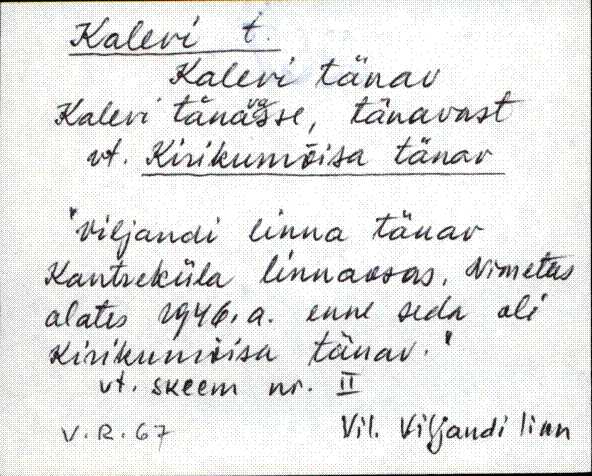 Kalevi t.
Kalevi tänav
Kalevi tänavasse, tänavast
vt. Kirikumõisa tänav
"Viljandi linna tänav
Kantreküla linnaosas. Nimetus
alates 1946.a. enne seda oli
Kirikumõisa tänav."
vt. skeem nr. II
V.R.67 Vil. Viljandi linn